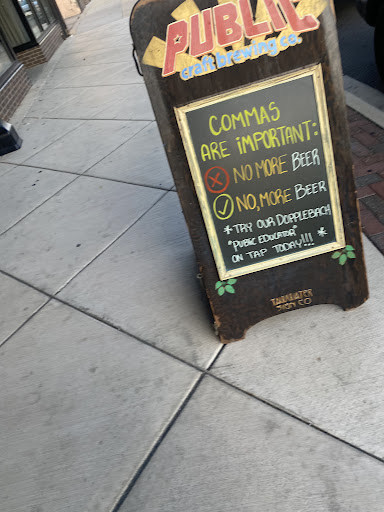 PUBLIC
craft brewing co.
COMMAS
ARE IMPORTANT:
NO MORE BEER
NO, MORE BEER
*TRY OUR DOPPLEBACH
"PUBLIC EDUCATOR"
ON TAP TODAY!!! *